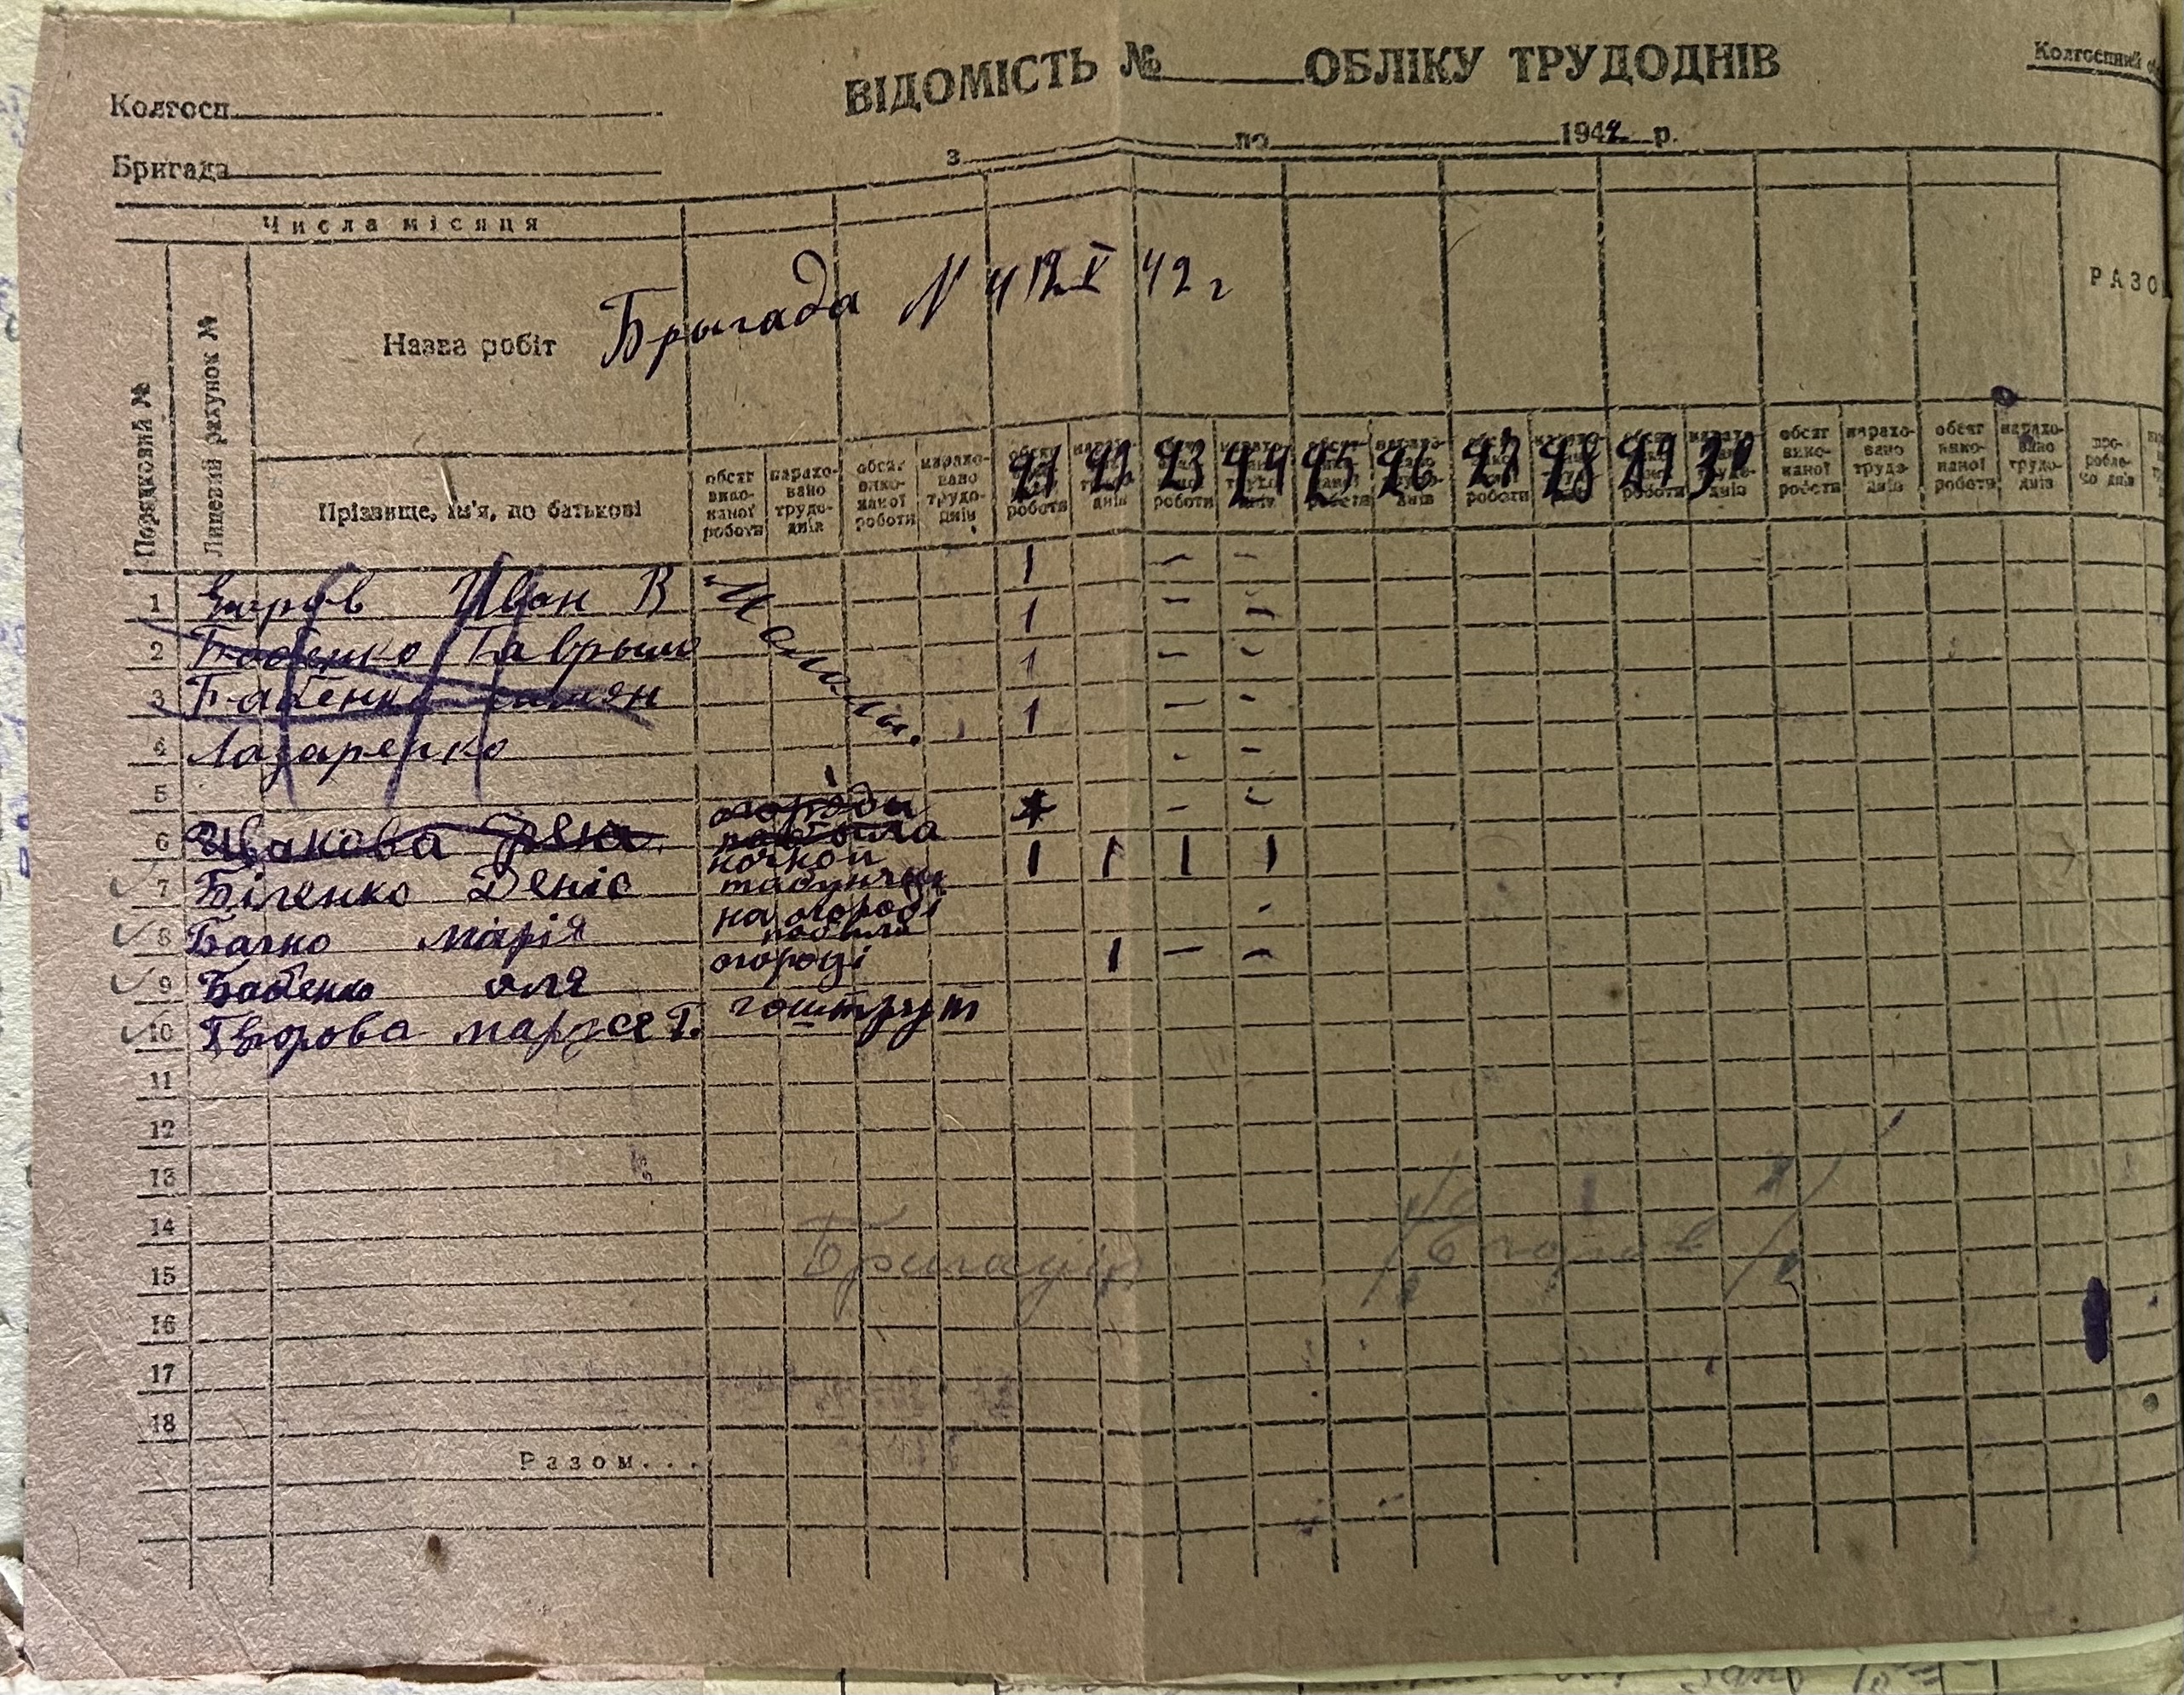 ВІДОМІСТЬ № ОБЛІКУ ТРУДОДНІВ
Колгоспний
Колгосп
Бригада
з по 1942 р.
Числа місяця
Порядковий №
Лицевий рахунок №
Назва робіт
Бригада N 4 12 V 42 г
РАЗО
Прізвище, ім'я, по батькові
обсяг виконаної роботи нараховано трудоднів обсяг виконаної роботи нараховано трудоднів обсяг виконаної роботи нараховано трудоднів обсяг виконаної роботи нараховано трудоднів обсяг виконаної роботи нараховано трудоднів обсяг виконаної роботи нараховано трудоднів обсяг виконаної роботи нараховано трудоднів обсяг виконаної роботи нараховано трудоднів обсяг виконаної роботи нараховано трудоднів
21 22 23 24 25 26 27 28 29 30
1 Иван В 1 - -
2 Бабенко Гаврыло 1 - -
3 Бабенко 1 - -
4 Лазаренко 1 - -
5 - -
6 огороди - -
7 Біленко Деніс ночной 1 1 1 1
8 Бачко марія на огороді -
9 Бабенко оля огороді 1 - -
10 маруся Г.
11
12
13
14
15 Бригадір /Єгоров/
16
17
18
Разом...